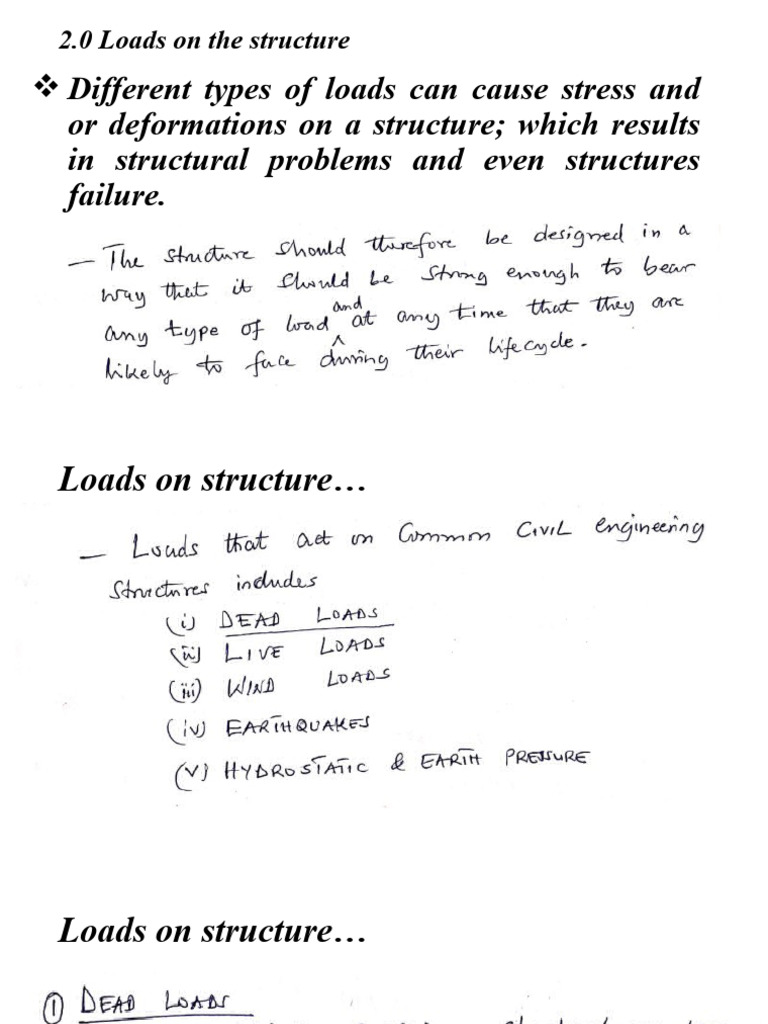 2.0 Loads on the structure
❖ Different types of loads can cause stress and
or deformations on a structure; which results
in structural problems and even structures
failure.
– The structure should therefore be designed in a
way that it should be strong enough to bear
any type of load and at any time that they are
likely to face during their lifecycle.
Loads on structure…
– Loads that act on common CIVIL engineering
structures includes
(i) DEAD LOADS
(ii) LIVE LOADS
(iii) WIND LOADS
(iv) EARTHQUAKES
(v) HYDROSTATIC & EARTH PRESSURE
Loads on structure…
① DEAD LOADS